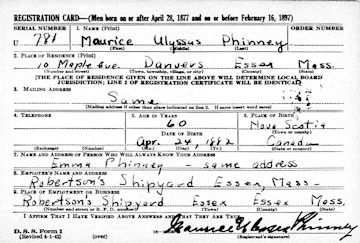 REGISTRATION CARD—(Men born on or after April 28, 1877 and on or before February 16, 1897)
SERIAL NUMBER 1. NAME (Print) ORDER NUMBER
U 781 Maurice Ulyssus Phinney
(First) (Middle) (Last)
2. PLACE OF RESIDENCE (Print)
10 Maple Ave. Danvers Essex Mass.
(Number and street) (Town, township, village, or city) (County) (State)
[THE PLACE OF RESIDENCE GIVEN ON THE LINE ABOVE WILL DETERMINE LOCAL BOARD
JURISDICTION; LINE 2 OF REGISTRATION CERTIFICATE WILL BE IDENTICAL]
3. MAILING ADDRESS
Same
[Mailing address if other than place indicated on line 2. If same insert word same]
4. TELEPHONE 5. AGE IN YEARS 6. PLACE OF BIRTH
60 Nova Scotia
DATE OF BIRTH (Town or county)
Apr. 24, 1882 Canada
(Exchange) (Number) (Mo.) (Day) (Yr.) (State or country)
7. NAME AND ADDRESS OF PERSON WHO WILL ALWAYS KNOW YOUR ADDRESS
Emma Phinney - same address
8. EMPLOYER'S NAME AND ADDRESS
Robertson's Shipyard Essex, Mass.
9. PLACE OF EMPLOYMENT OR BUSINESS
Robertson's Shipyard Essex Essex Mass.
(Number and street or R. F. D. number) (Town) (County) (State)
I AFFIRM THAT I HAVE VERIFIED ABOVE ANSWERS AND THAT THEY ARE TRUE.
D. S. S. Form 1
(Revised 4-1-42) (over) Maurice Ulysses Phinney
(Registrant's signature)